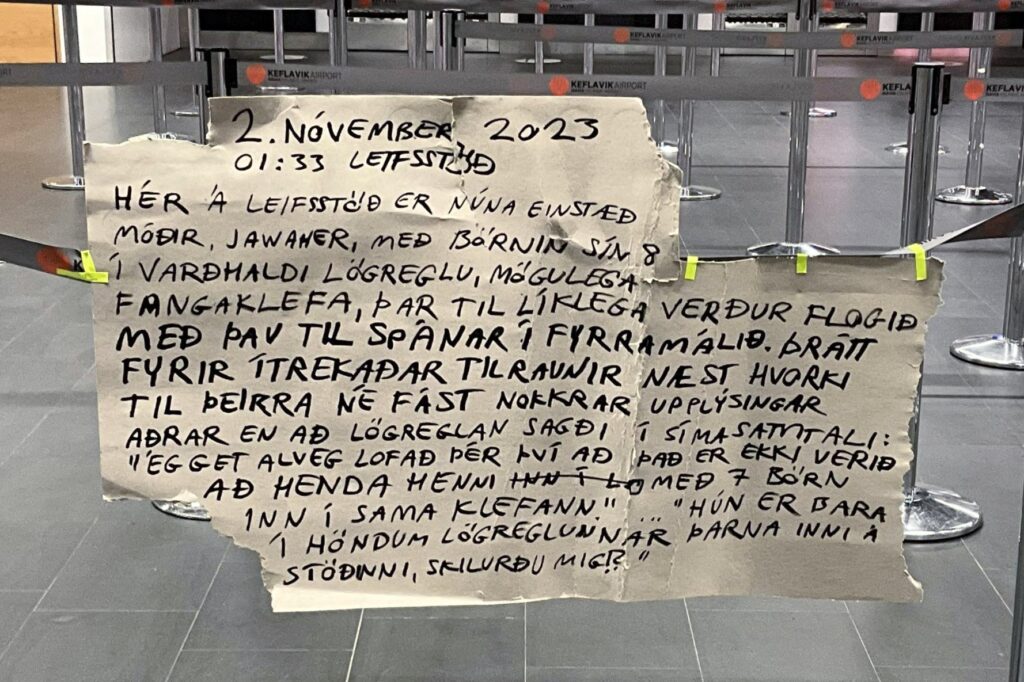 KEFLAVIK AIRPORT
KEFLAVIK AIRPORT
KEFLAVIK AIRPORT
KEFLAVIK AIRPORT
2. NÓVEMBER 2023
01:33 LEIFSSTÖÐ
HÉR Á LEIFSSTÖÐ ER NÚNA EINSTÆÐ
MÓÐIR, JAWAHER, MEÐ BÖRNIN SÍN 8
Í VARÐHALDI LÖGREGLU, MÖGULEGA
FANGAKLEFA, ÞAR TIL LÍKLEGA VERÐUR FLOGIÐ
MEÐ ÞAU TIL SPÁNAR Í FYRRAMÁLIÐ. ÞRÁTT
FYRIR ÍTREKAÐAR TILRAUNIR NÆST HVORKI
TIL ÞEIRRA NÉ FÁST NOKKRAR UPPLÝSINGAR
AÐRAR EN AÐ LÖGREGLAN SAGÐI Í SÍMASAMTALI:
"ÉG GET ALVEG LOFAÐ ÞÉR ÞVÍ AÐ ÞAÐ ER EKKI VERIÐ
AÐ HENDA HENNI INN Í MEÐ 7 BÖRN
INN Í SAMA KLEFANN" ... "HÚN ER BARA
Í HÖNDUM LÖGREGLUNNAR ÞARNA INNI Á
STÖÐINNI, SKILURÐU MIG!?"